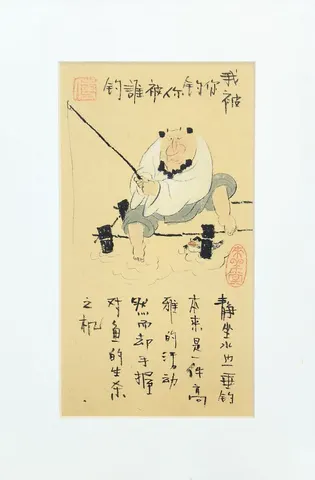 我被你钓你被誰钓
静坐水边垂钓
本来是一件高
雅的活动
然而却手握
对鱼的生杀
之机